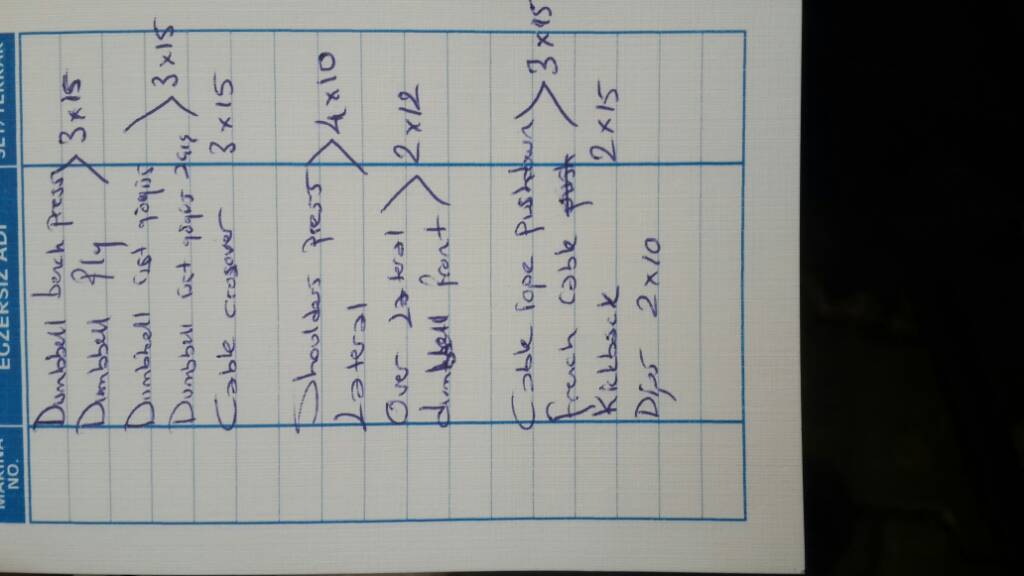 MAKİNA NO. EGZERSİZ ADI SET/TEKRAR
Dumbbell bench press
Dumbbell fly > 3x15
Dumbbell üst göğüs
Dumbbell üst göğüs açış > 3x15
Cable crosover 3x15
Shoulders press
Lateral > 4x10
Over Lateral
dumbbell front > 2x12
Cable rope pushdown
french cable push > 3x15
Kickback 2x15
Dips 2x10